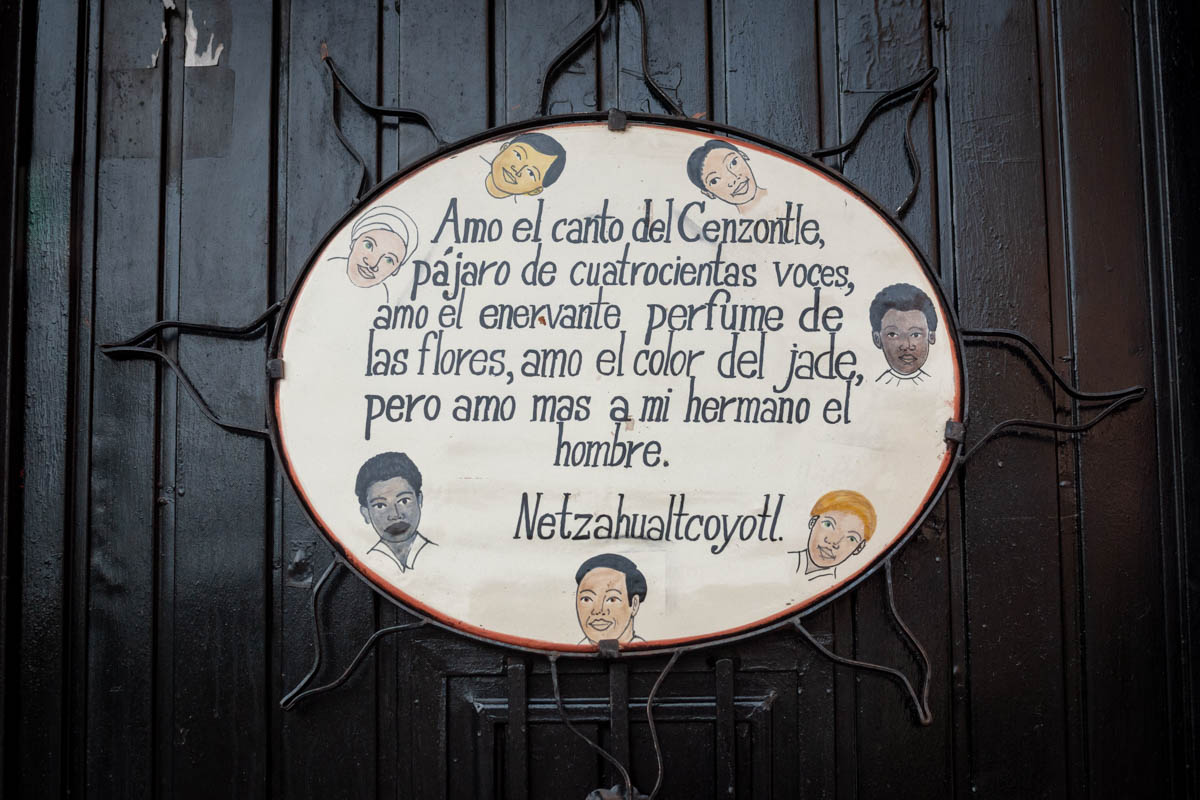 Amo el canto del Cenzontle,
pájaro de cuatrocientas voces,
amo el enervante perfume de
las flores, amo el color del jade,
pero amo mas a mi hermano el
hombre.
Netzahualtcoyotl.